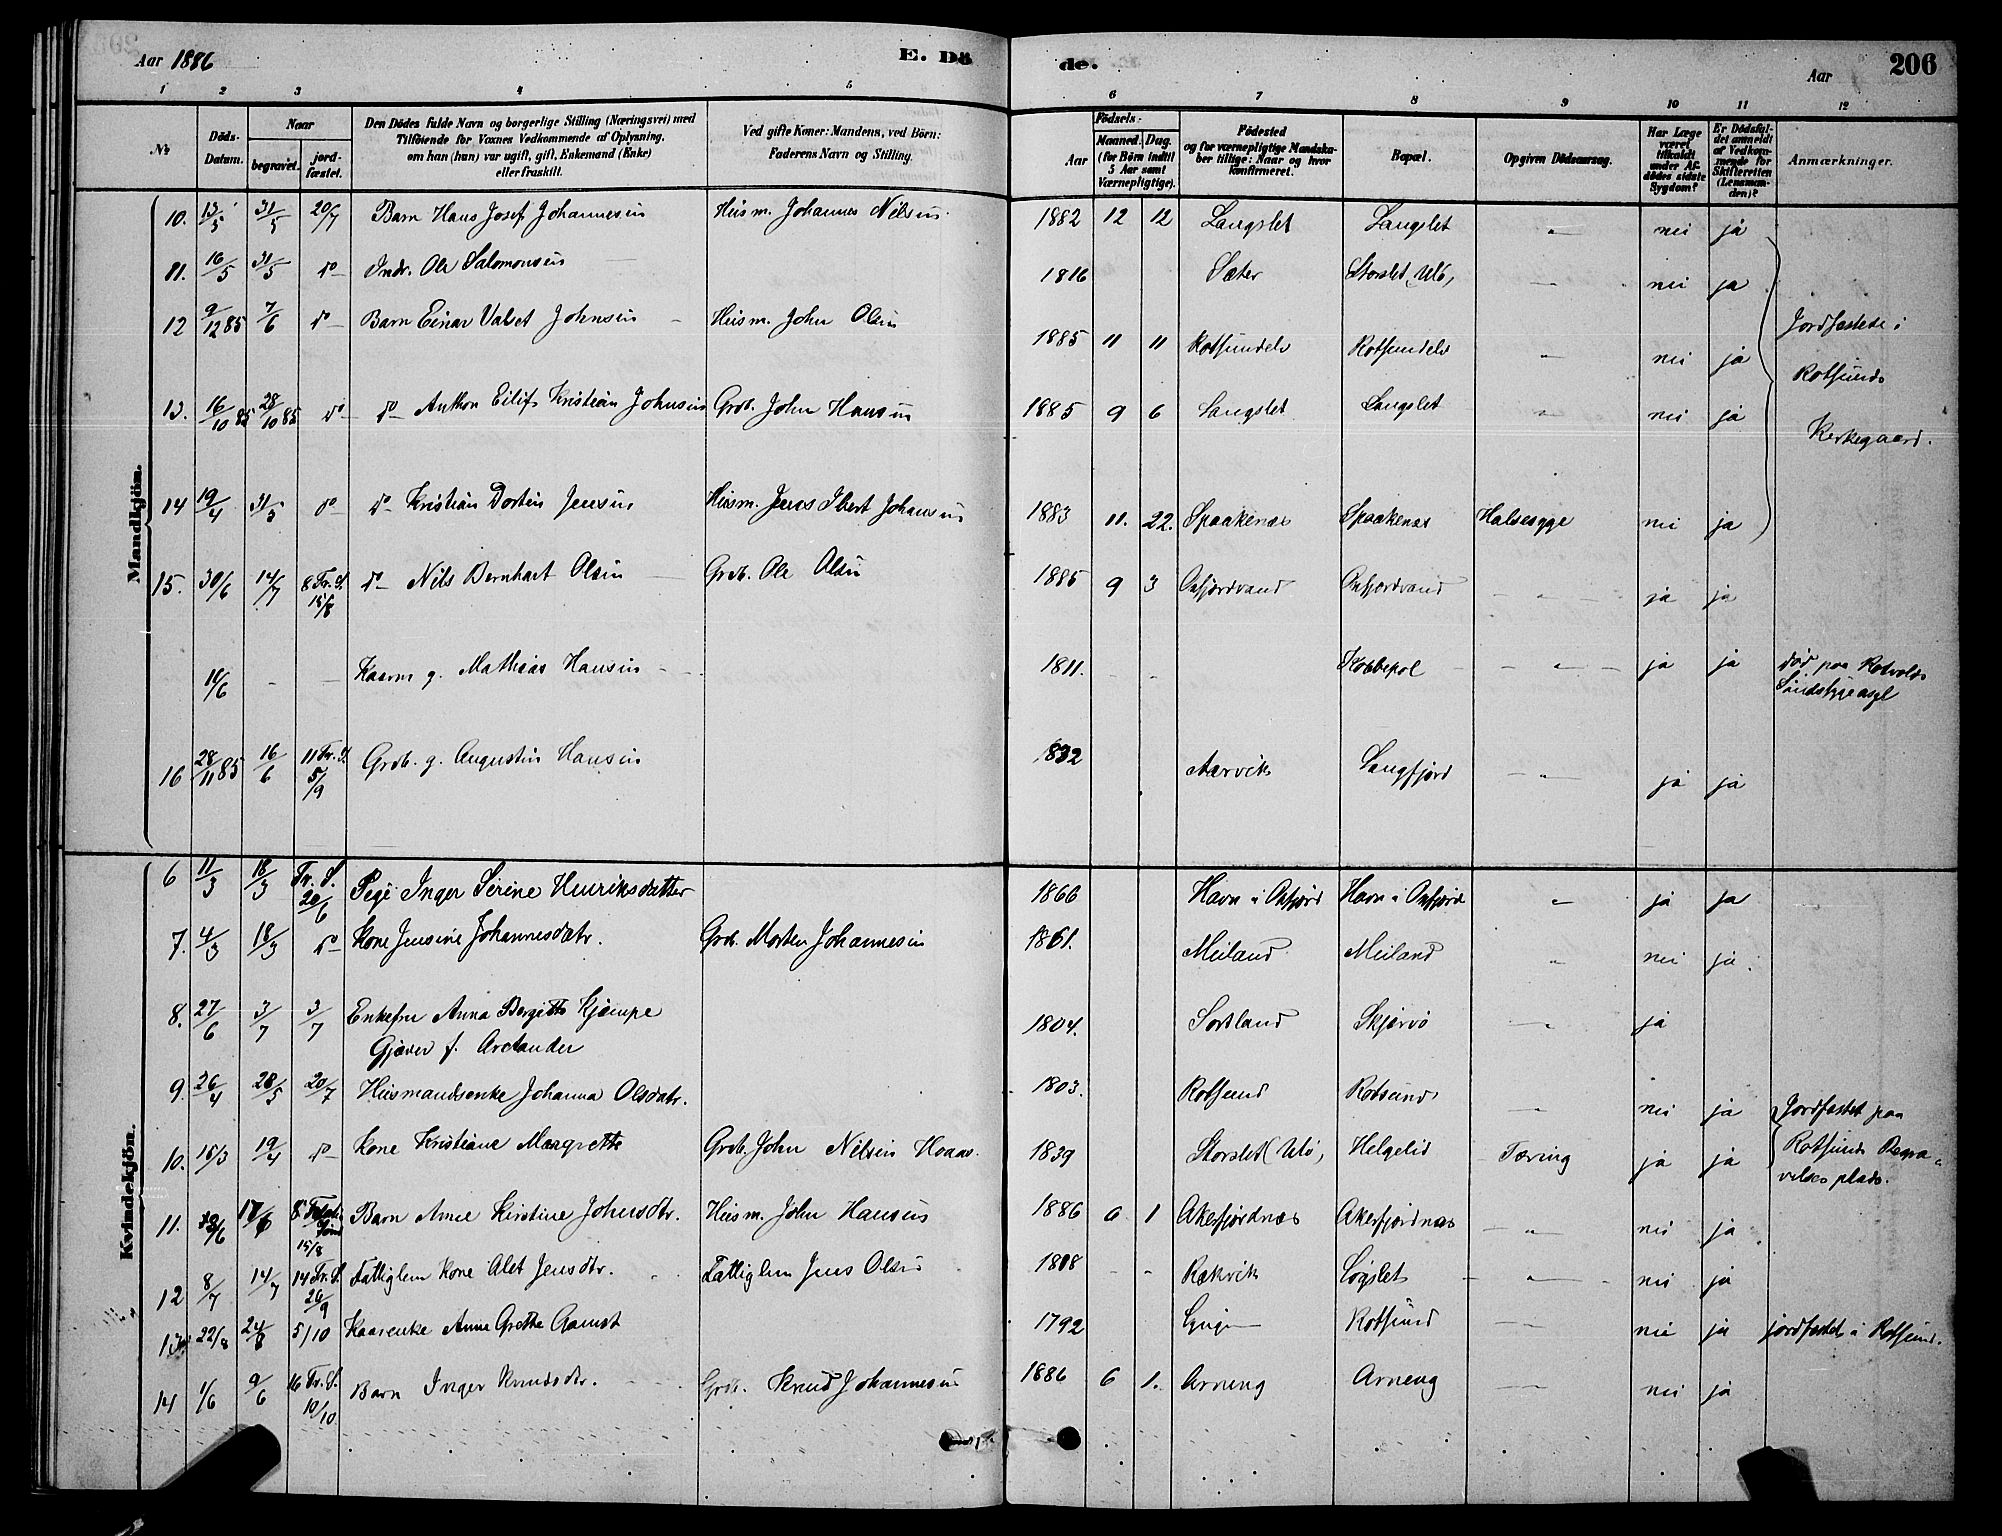 Aar 1886
E. Dö
de.
Aar
206
1 2 3 4 5 6 7 8 9 10 11 12
No
Döds-
Datum.
Naar
begravet.
jord-
fæstet.
Den Dödes fulde Navn og borgerlige Stilling (Næringsvei) med
Tilföiende for Voxnes Vedkommende af Oplysning,
om han (hun) var ugift, gift, Enkemand (Enke)
eller fraskilt.
Ved gifte Koner: Mandens, ved Börn:
Faderens Navn og Stilling.
Födsels:
Aar
Maaned. Dag.
(for Börn indtil
5 Aar samt
Værnepligtige).
Födested
og for værnepligtige Mandska-
ber tillige: Naar og hvor
konfirmeret.
Bopæl.
Opgiven Dödsaarsag.
Har Læge
været
tilkaldt
under Af-
dödes sidste
Sygdom?
Er Dödsfal-
det anmeldt
af Vedkom-
mende for
Skifteretten
(Lensman-
den)?
Anmærkninger.
Mandkjön.
10. 13/5 31/5 20/7 Barn Hans Josef Johannesen Husm. Johannes Nilsen 1882 12 12 Langslet Langslet " nei ja
11. 16/5 31/5 do Indr. Ole Salomonsen 1816 Sæter Storslet, Ulö, nei ja
12 9/12 85 7/6 do Barn Einar Valset Johnsen Husm. John Olsen 1885 11 11 Rotsundelv Rotsundelv " nei ja
Jordfæstede i
Rotsunds
Kirkegaard.
13. 16/10 85 28/10 85 do do Anthon Eilif Kristian Johnsen Grdb. John Hansen 1885 9 6 Langslet Langslet " nei ja
14 19/4 31/5 do do Kristian Dorteus Jensen Husm. Jens Ibert Johansen 1883 11. 22. Spaakenæs Spaakenæs Halsesyge nei ja
15. 30/6 14/7 8 Tr. S. 15/8 do Nils Bernhart Olsen Grdb. Ole Olsen 1885 9 3 Oxfjordvand Oxfjordvand " ja ja
10/6 Kaarm g. Mathias Hansen 1811. Kobbepol " ja ja død paa Rotvolds
Sindsygeasyl
16 28/11 85 16/6 11 Tr. S. 5/9 Grdb. g. Augustin Hansen 1832 Aarvik Langfjord " ja ja
Kvindekjön.
6 11/3 18/3 Tr. S. 20/6 Pige Inger Serine Henriksdatter 1866 Havn i Oxfjord Havn i Oxfjord " ja ja
7. 4/3 18/3 do Kone Jensine Johannesdatr. Grdb. Morten Johannesen 1861. Meiland Meiland " nei ja
8. 27/6 3/7 3/7 Enkefru Anna Bergitte Kjæmpe
Gjæver f. Arctander 1804. Sortland Skjervö ja
9. 26/4 28/5 20/7 Husmandsenke Johanna Olsdatr. 1803. Rotsund Rotsund nei ja
Jordfæstet paa
Rotsunds Begra-
velsesplads.
10. 15/3 19/4 do Kone Kristiane Margrethe Grdb. John Nilsen Hoaas. 1839 Storslet, Ulö, Helgelid Tæring ja ja
11. 17/6 8 15/8 Barn Anne Kirstine Johnsdtr. Husm. John Hansen 1886 6 1 Akerfjordnæs Akerfjordnæs " nei ja
12 8/7 14/7 14 Tr. S. 26/9 Fattiglem Kone Alet Jensdtr. Fattiglem Jens Olsen 1808 Rækvik Løgslet " nei ja
13 22/8 24/8 5/10 Kaarenke Anne Grethe Gamst 1792 Rotsund nei ja jordfæstet i Rotsund.
14 1/6 9/6 16 Tr. S. 10/10 Barn Inger Knudsdtr. Grdb. Knud Johannesen 1886 6 1. Arneng Arneng nei ja